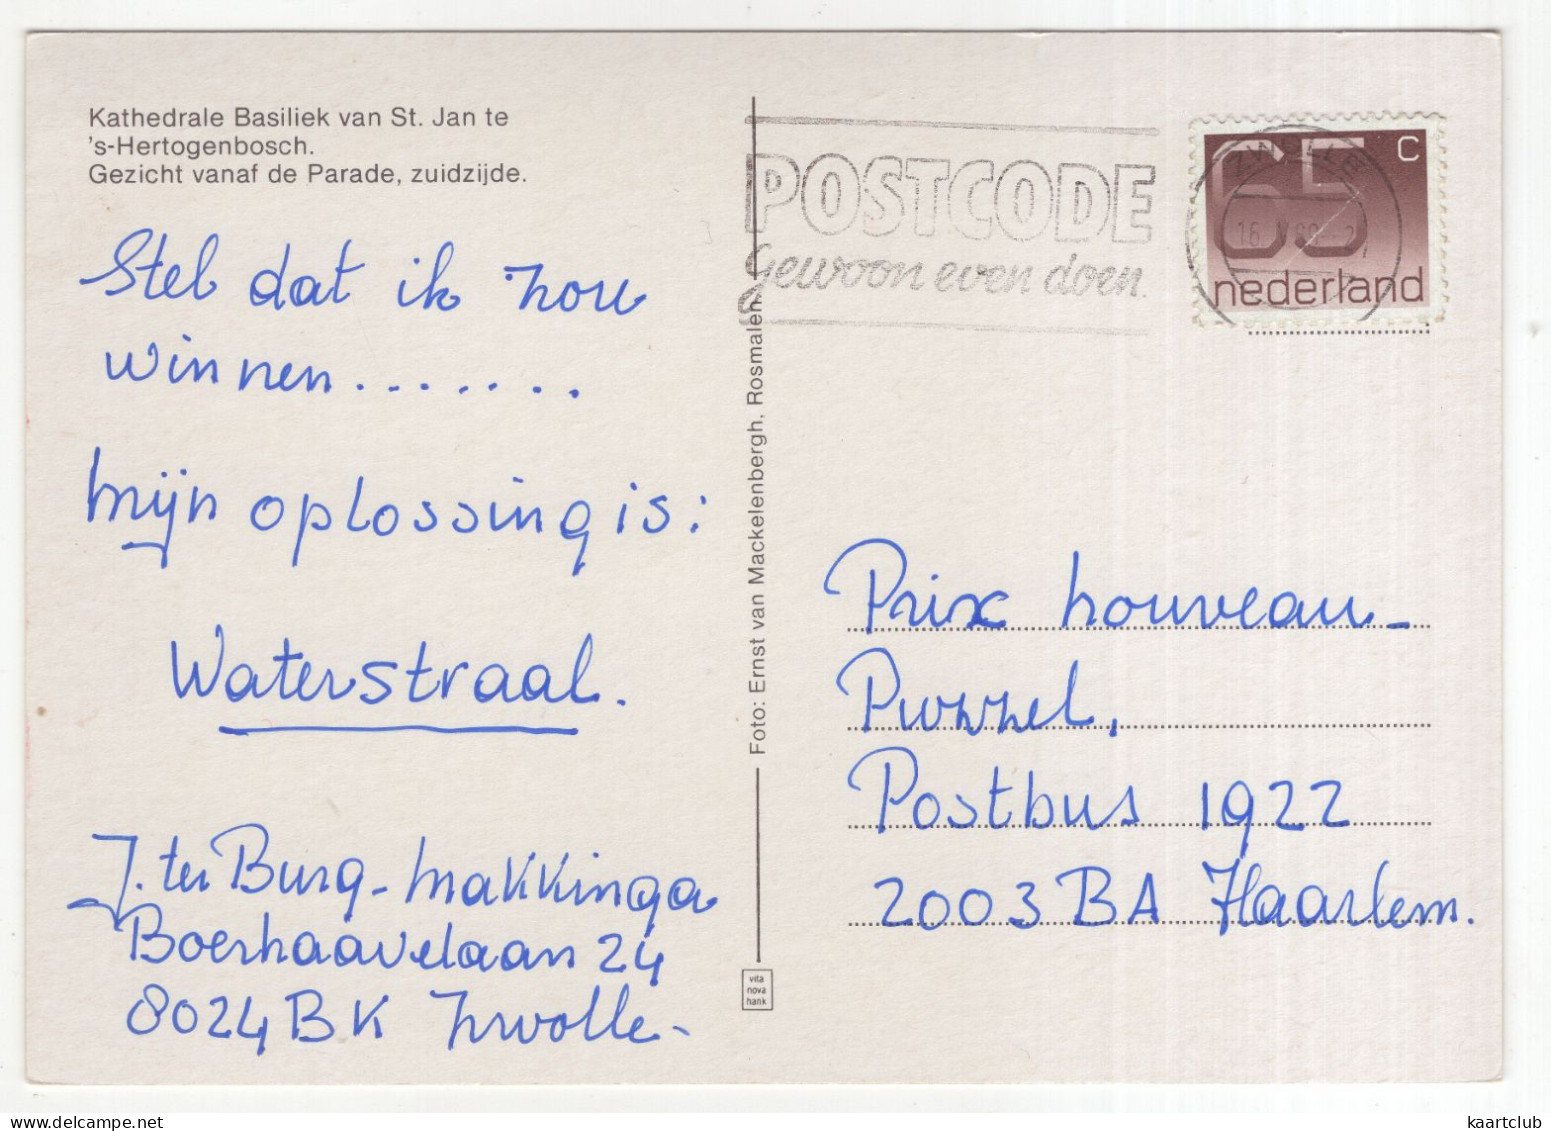 Kathedrale Basiliek van St. Jan te
's-Hertogenbosch.
Gezicht vanaf de Parade, zuidzijde.
Stel dat ik zou
winnen.......
Mijn oplossing is:
Waterstraal.
J. ter Burg-Makkinga
Boerhaavelaan 24
8024 BK Zwolle-
Foto: Ernst van Mackelenbergh, Rosmalen.
vita
nova
hank
POSTCODE
gewoon even doen.
ZWOLLE
65 c
nederland
Prix nouveau-
Puzzel,
Postbus 1922
2003 BA Haarlem.
kaartclub